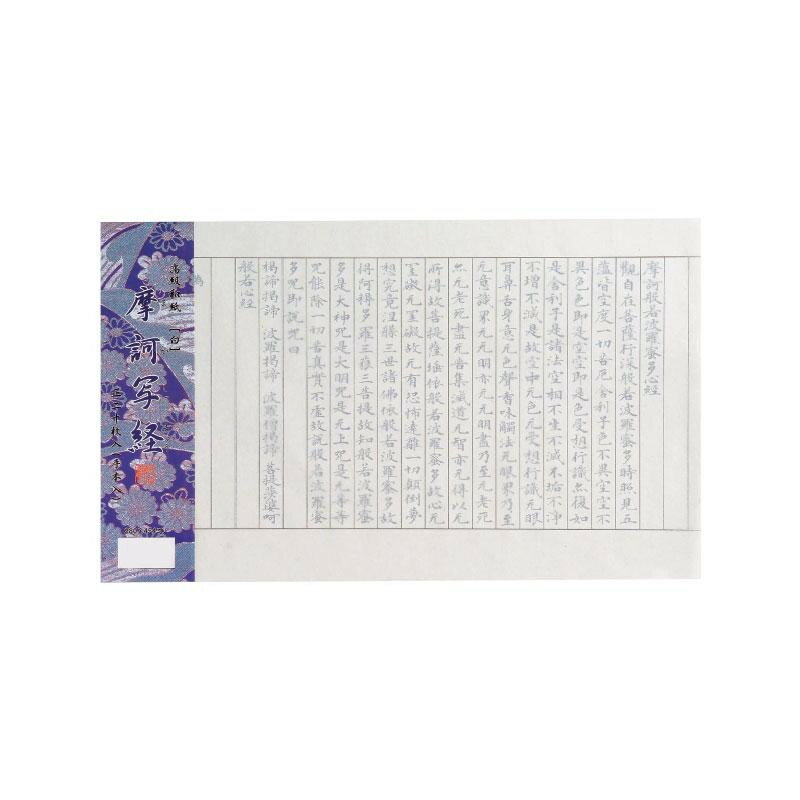 摩訶般若波羅蜜多心経
觀自在菩薩行深般若波羅蜜多時照見五
蘊皆空度一切苦厄舎利子色不異空空不
異色色即是空空即是色受想行識亦復如
是舎利子是諸法空相不生不滅不垢不浄
不増不減是故空中无色无受想行識无眼
耳鼻舌身意无色聲香味觸法无眼界乃至
无意識界无无明亦无无明盡乃至无老死
亦无老死盡无苦集滅道无智亦无得以无
所得故菩提薩埵依般若波羅蜜多故心无
罣礙无罣礙故无有恐怖遠離一切顛倒夢
想究竟涅槃三世諸佛依般若波羅蜜多故
得阿耨多羅三藐三菩提故知般若波羅蜜
多是大神咒是大明咒是无上咒是无等等
咒能除一切苦真實不虚故説般若波羅蜜
多咒即説咒曰
掲諦掲諦 波羅掲諦 波羅僧掲諦 菩提薩婆呵
般若心経
為
高級和紙［白］
摩訶写経
正二十枚入（手本入）